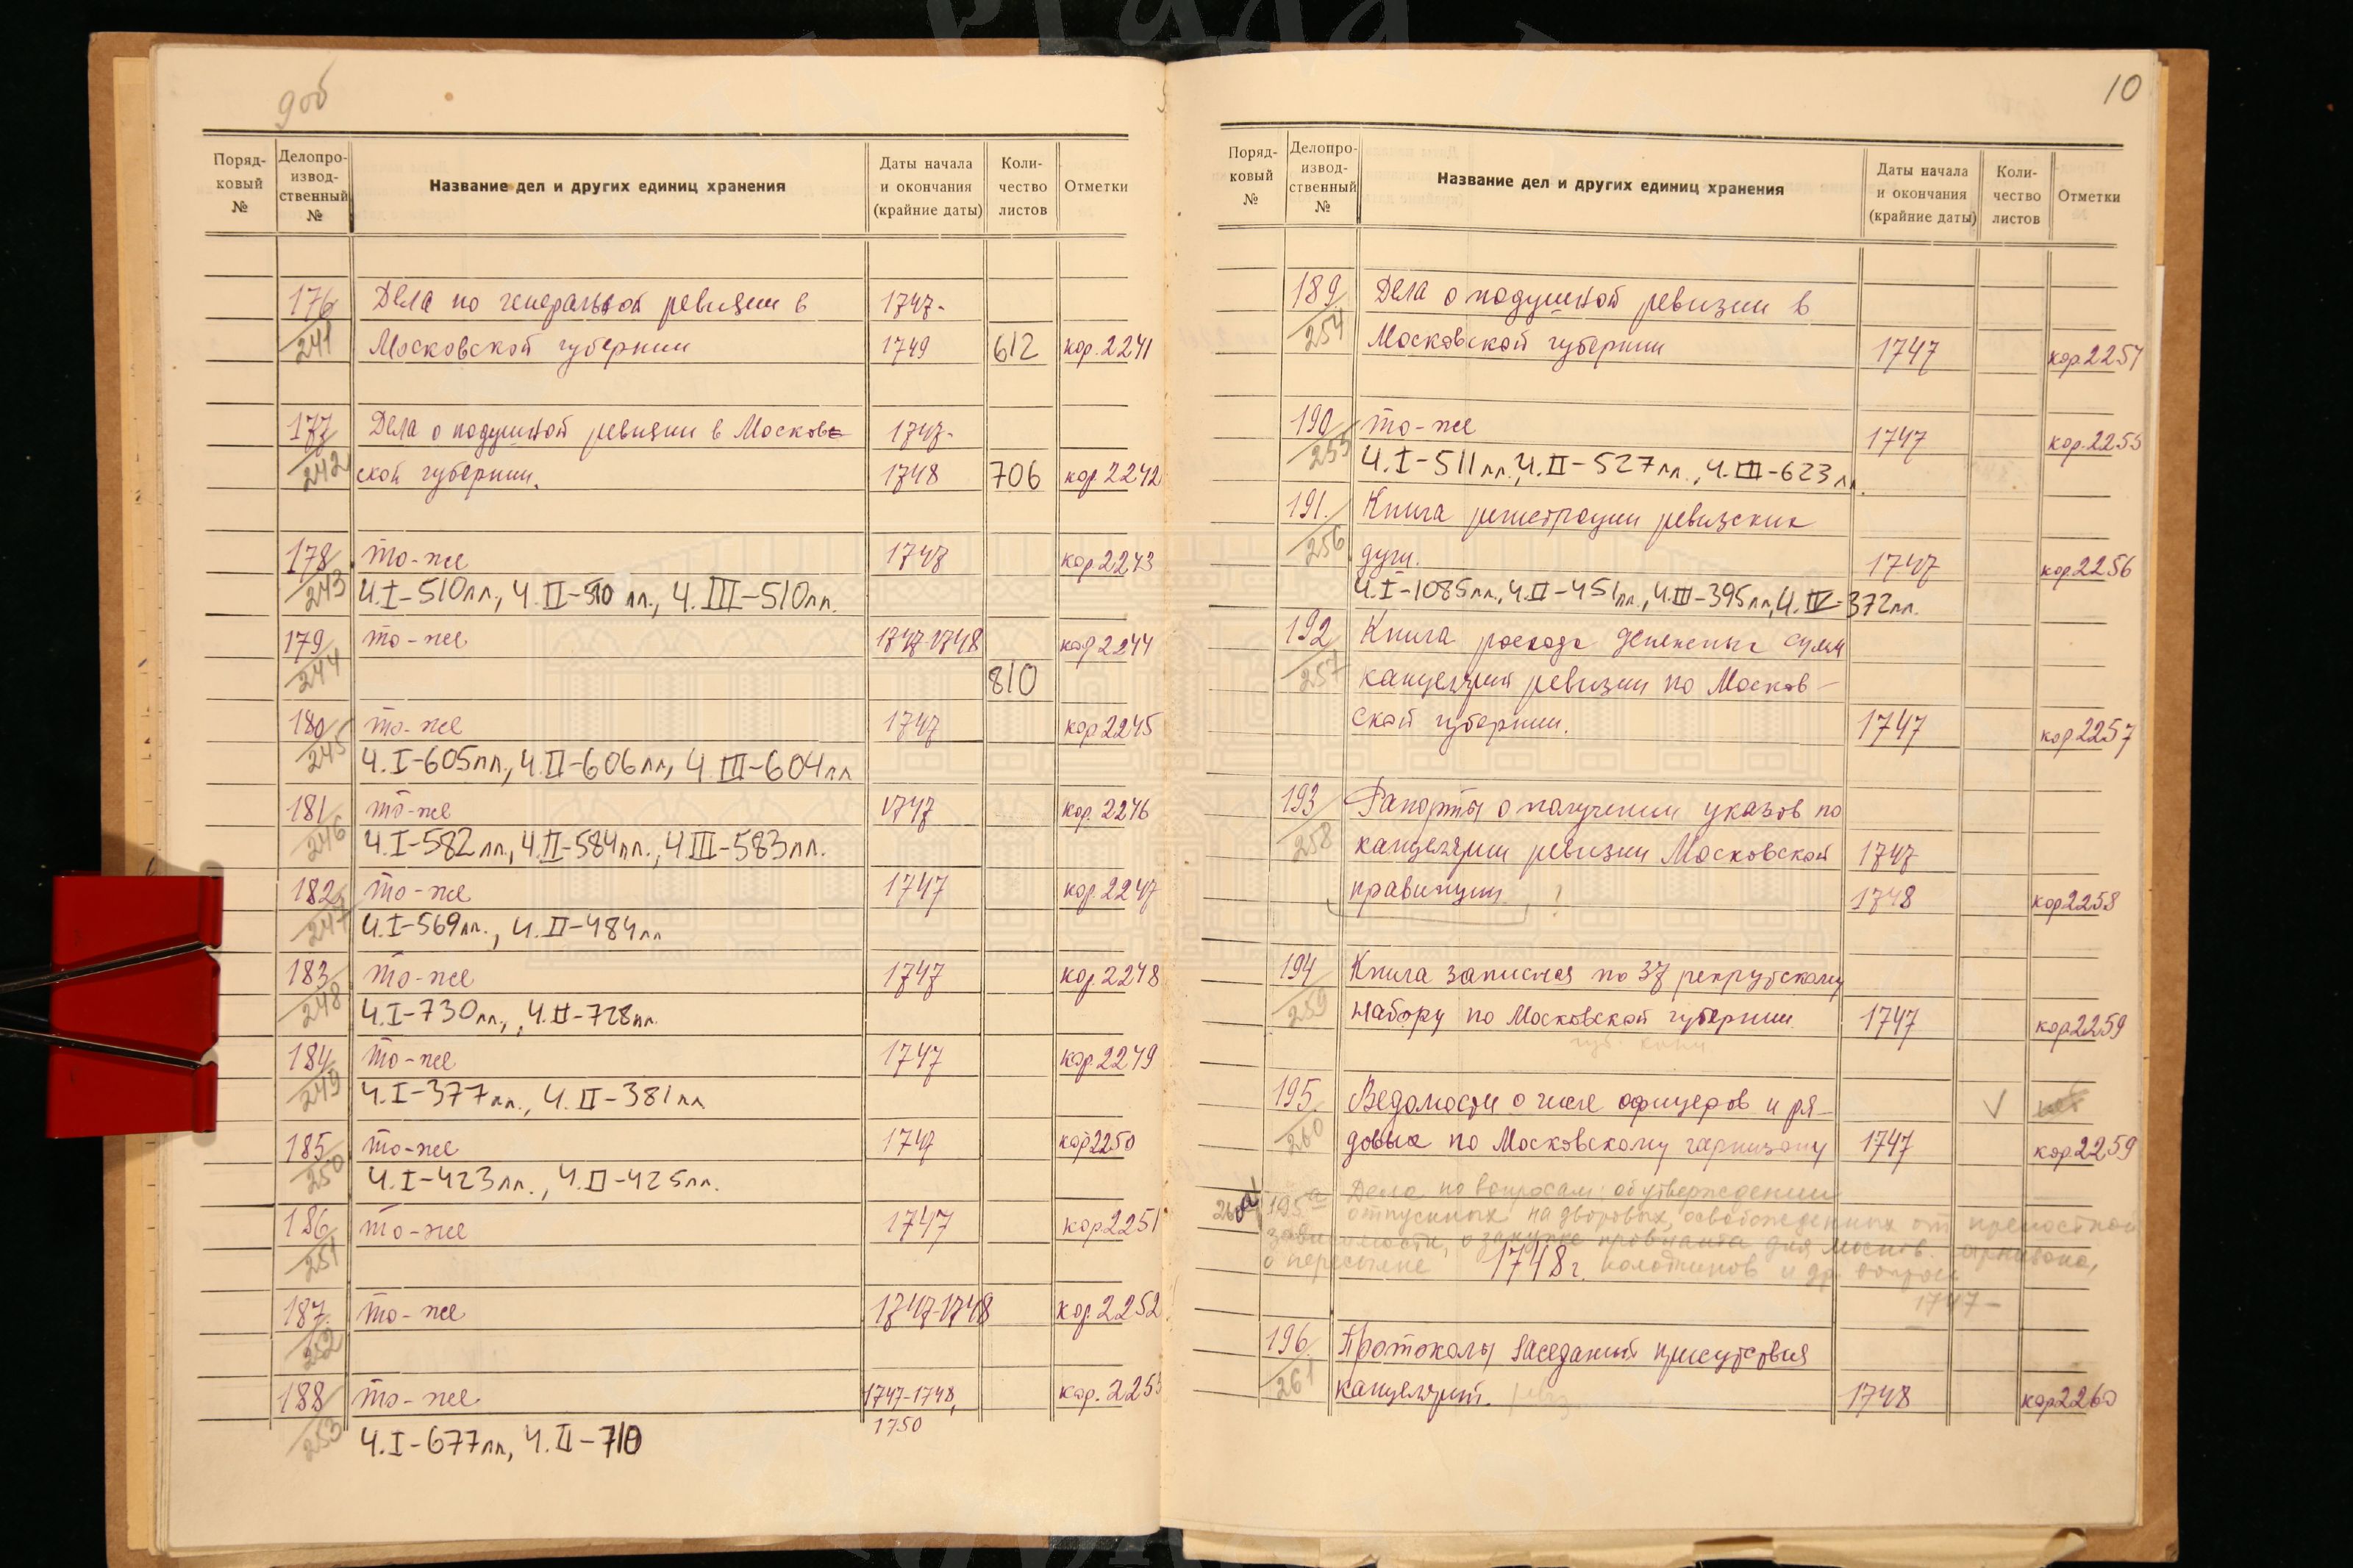 9об
Поряд-
ковый
№
Делопро-
извод-
ственный
№
Название дел и других единиц хранения
Даты начала
и окончания
(крайние даты)
Коли-
чество
листов
Отметки
176 Дела по генеральной ревизии в 1747-
241 Московской губернии 1749 612 кор. 2241
177 Дела о подушной ревизии в Москов- 1747-
242 ской губернии. 1748 706 кор. 2242
178 то-же 1748 кор 2243
243 Ч.I-510лл, Ч.II-510 лл., Ч.III-510лл.
179 то-же 1747-1748 кор 2244
244 810
180 то-же 1747 кор 2245
245 Ч.I-605лл., Ч.II-606лл, Ч.III-604лл
181 то-же 1747 кор. 2246
246 Ч.I-582лл., Ч.II-584лл., Ч.III-583лл.
182 то-же 1747 кор. 2247
247 Ч.I-569лл., Ч.II-484лл
183 то-же 1747 кор. 2248
248 Ч.I-730лл., Ч.II-728лл.
184 то-же 1747 кор. 2249
249 Ч.I-377лл., Ч.II-381лл
185 то-же 1747 кор 2250
250 Ч.I-423лл., Ч.II-425лл.
186 то-же 1747 кор 2251
251
187 то-же 1747-1748 кор. 2252
252
188 то-же 1747-1748, кор. 225
253 1750
Ч.I-677лл, Ч.II-710
10
Поряд-
ковый
№
Делопро-
извод-
ственный
№
Название дел и других единиц хранения
Даты начала
и окончания
(крайние даты)
Коли-
чество
листов
Отметки
189 Дела о подушной ревизии в
254 Московской губернии 1747 кор. 2254
190 то-же 1747 кор. 2255
255 Ч.I-511лл., Ч.II-527лл., Ч.III-623лл.
191. Книга регистрации ревизских
256 душ. 1747 кор. 2256
Ч.I-1085лл., Ч.II-451лл., Ч.III-395лл, Ч.IV-372лл.
192 Книга расхода денежных сумм
257 канцелярии ревизии по Москов-
ской губернии. 1747 кор 2257
193 Рапорты о получении указов по
258 канцелярии ревизии Московской 1747-
правинции ! 1748 кор 2258
194 Книга записная по 37 рекрутскому
259 набору по Московской губернии. 1747 кор 2259
195. Ведомости о числе офицеров и ря- √
260 довых по Московскому гарнизону 1747 кор 2259
260а 195а Дела по вопросам: об утверждении
отпускных на дворовых, освобожденных от крепостной
зависимости, о закупке провианта для москов. гарнизона,
о пересылке 1748г. колодников и др. вопросы
1747-
196. Протоколы заседаний присутствия
261 канцелярии. 1748 кор 2260